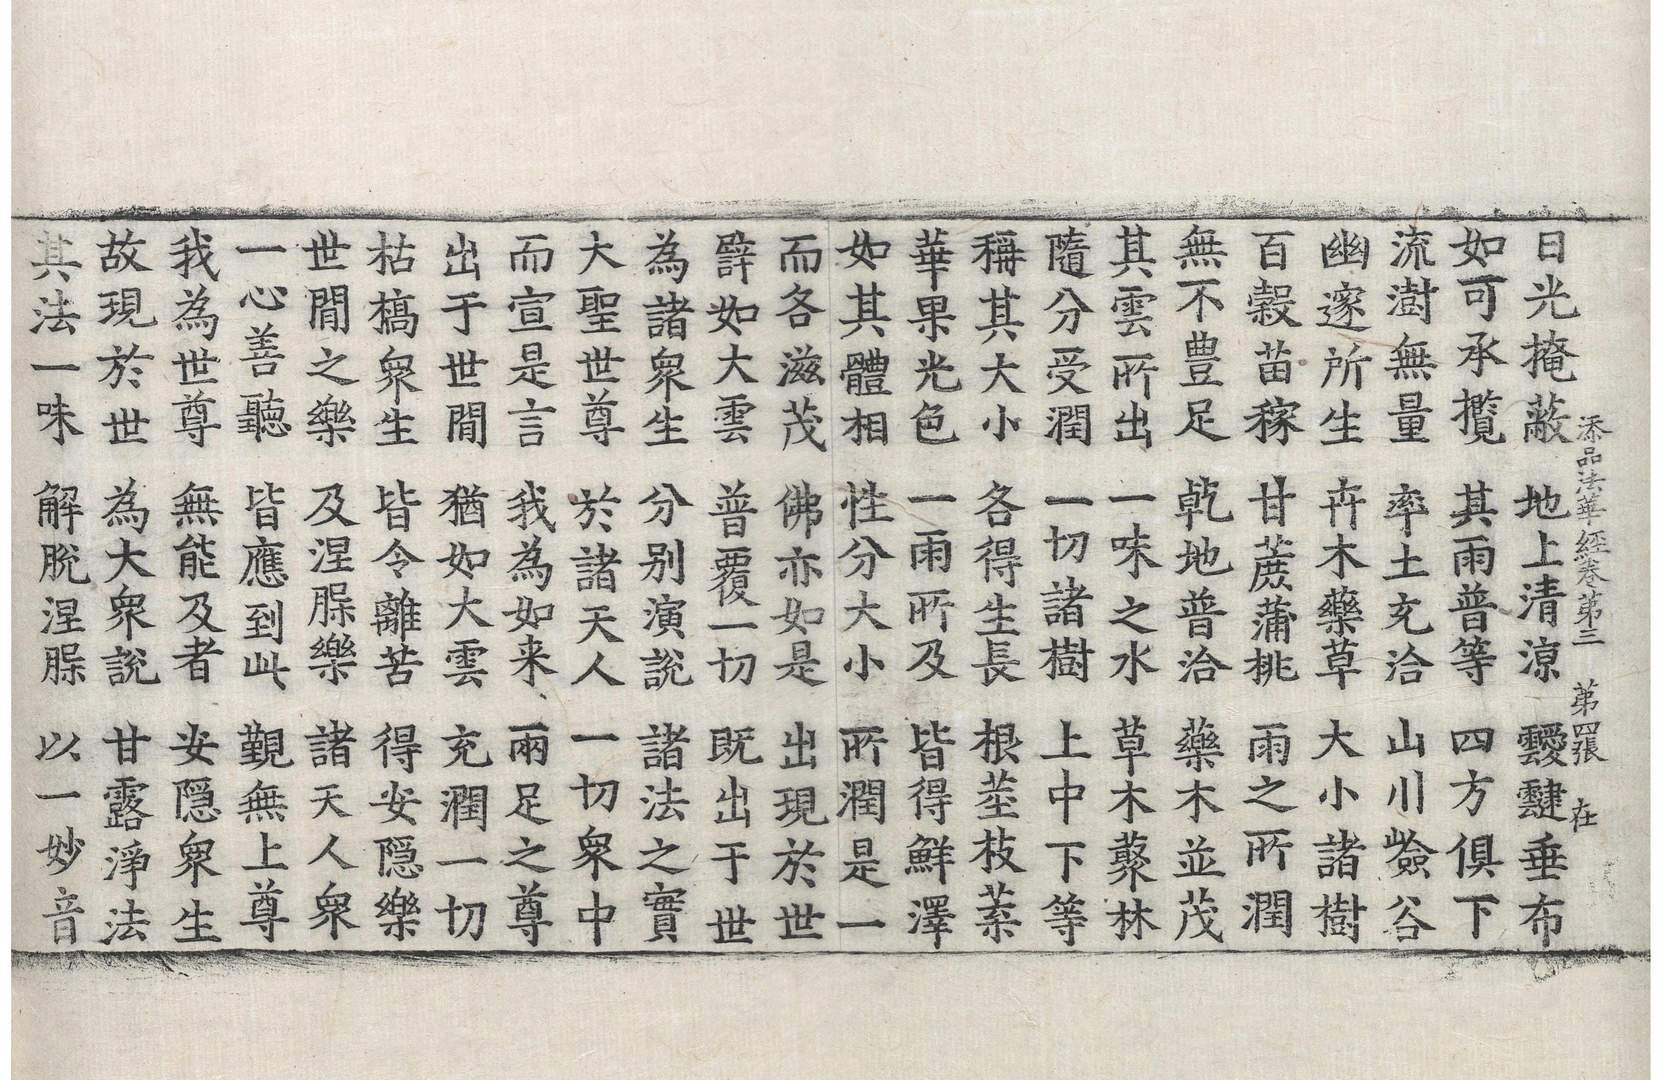 添品法華經卷第三 第四張 在
日光掩蔽 地上清涼 靉靆垂布
如可承攬 其雨普等 四方俱下
流澍無量 率土充洽 山川嶮谷
幽邃所生 卉木藥草 大小諸樹
百穀苗稼 甘蔗蒲桃 雨之所潤
無不豊足 乾地普洽 藥木並茂
其雲所出 一味之水 草木藂林
隨分受潤 一切諸樹 上中下等
稱其大小 各得生長 根莖枝葉
華果光色 一雨所及 皆得鮮澤
如其體相 性分大小 所潤是一
而各滋茂 佛亦如是 出現於世
譬如大雲 普覆一切 既出于世
為諸眾生 分別演說 諸法之實
大聖世尊 於諸天人 一切眾中
而宣是言 我為如来 兩足之尊
出于世間 猶如大雲 充潤一切
枯槁眾生 皆令離苦 得安隱樂
世間之樂 及涅槃樂 諸天人眾
一心善聽 皆應到此 覲無上尊
我為世尊 無能及者 安隱眾生
故現於世 為大眾說 甘露淨法
其法一味 解脫涅槃 以一妙音